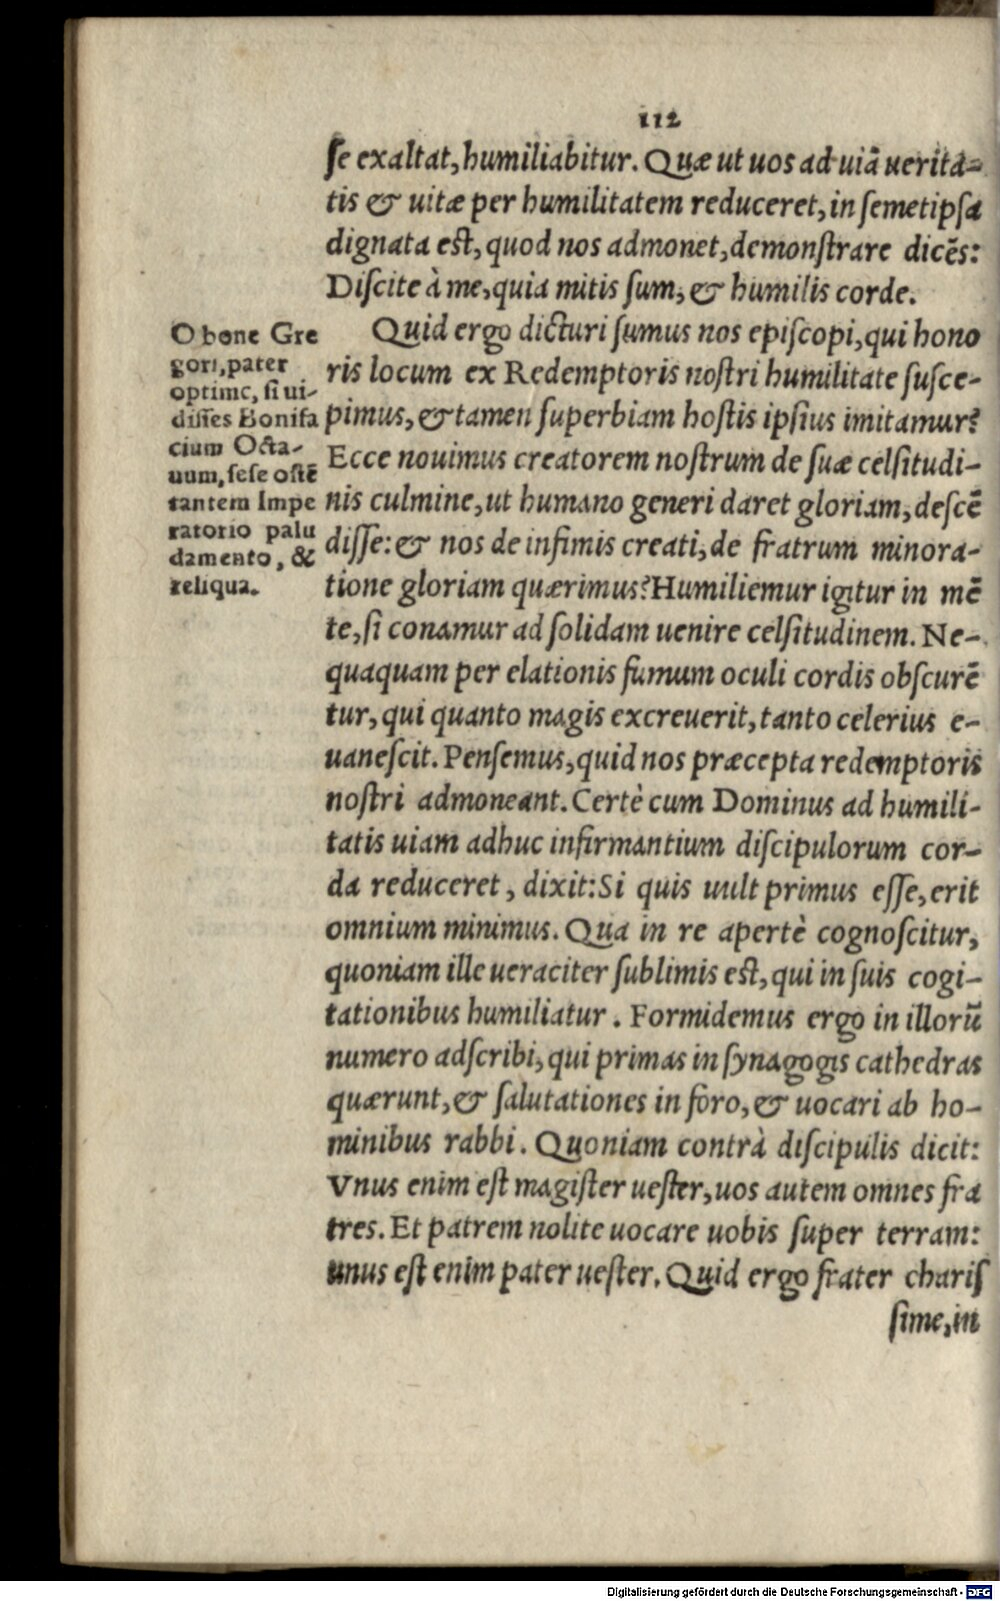 112
ſe exaltat, humiliabitur. Quæ ut uos ad uiã uerita-
tis & uitæ per humilitatem reduceret, in ſemetipſa
dignata eſt, quod nos admonet, demonſtrare dicẽs:
Diſcite à me, quia mitis ſum, & humilis corde.
Quid ergo dicturi ſumus nos epiſcopi, qui hono
ris locum ex Redemptoris noſtri humilitate ſuſce-
pimus, & tamen ſuperbiam hoſtis ipſius imitamur?
Ecce nouimus creatorem noſtrum de ſuæ celſitudi-
nis culmine, ut humano generi daret gloriam, deſcẽ
diſſe: & nos de infimis creati, de fratrum minora-
tione gloriam quærimus? Humiliemur igitur in mẽ
te, ſi conamur ad ſolidam uenire celſitudinem. Ne-
quaquam per elationis fumum oculi cordis obſcurẽ
tur, qui quanto magis excreuerit, tanto celerius e-
uaneſcit. Penſemus, quid nos præcepta redemptoris
noſtri admoneant. Certè cum Dominus ad humili-
tatis uiam adhuc infirmantium diſcipulorum cor-
da reduceret, dixit: Si quis uult primus eſſe, erit
omnium minimus. Qua in re apertè cognoſcitur,
quoniam ille ueraciter ſublimis eſt, qui in ſuis cogi-
tationibus humiliatur. Formidemus ergo in illorũ
numero adſcribi, qui primas in ſynagogis cathedras
quærunt, & ſalutationes in foro, & uocari ab ho-
minibus rabbi. Quoniam contrà diſcipulis dicit:
Vnus enim eſt magiſter ueſter, uos autem omnes fra
tres. Et patrem nolite uocare uobis ſuper terram:
unus eſt enim pater ueſter. Quid ergo frater chariſ
ſime, in
O bone Gre
gori, pater
optime, ſi ui-
diſſes Bonifa
cium Octa-
uum, ſeſe oſtẽ
tantem Impe
ratorio palu
damento, &
reliqua.
Digitalisierung gefördert durch die Deutsche Forschungsgemeinschaft - DFG